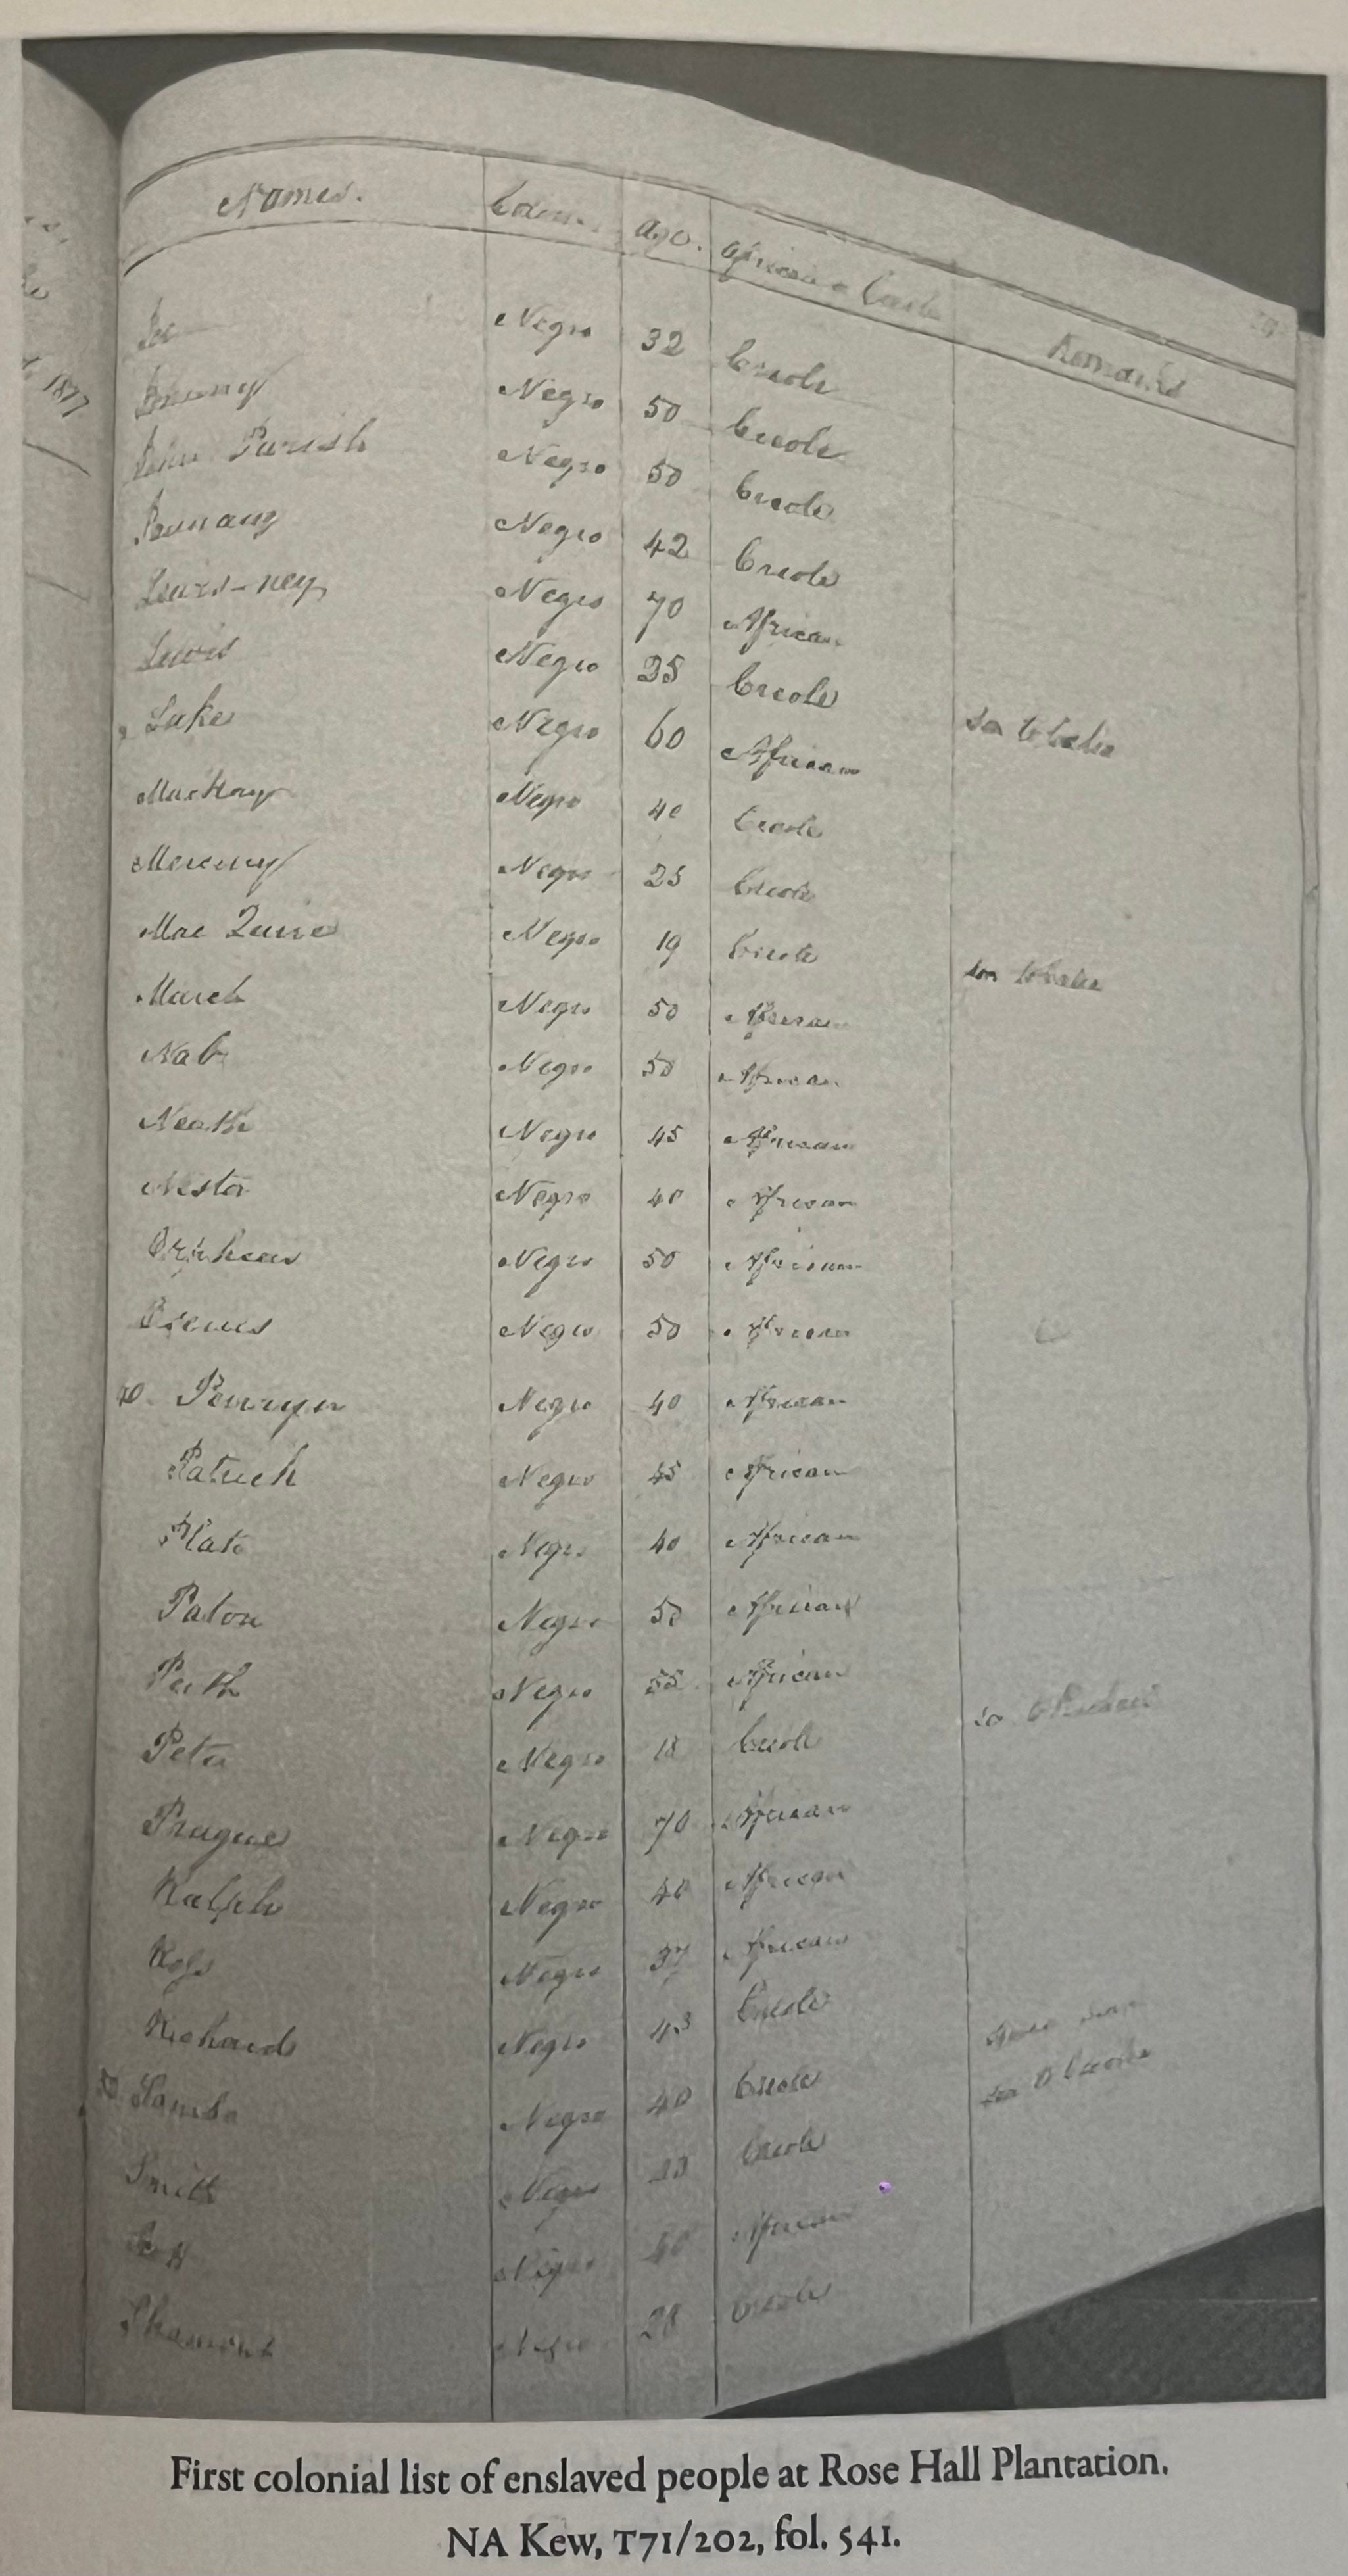 1817
Names. Colour. Age. African or Creole Remarks
Negro 32 Creole
Johnny Negro 50 Creole
John Parish Negro 50 Creole
Negro 42 Creole
Negro 70 African
Lewis Negro 25 Creole
Luke Negro 60 African Son to
MacKay Negro 40 Creole
Mercury Negro 25 Creole
Mac Negro 19 Creole Son to
March Negro 50 African
Nab Negro 50 African
Neath Negro 45 African
Nestor Negro 40 African
Orpheus Negro 50 African
Negro 50 African
Penryn Negro 40 African
Patrick Negro 45 African
Plato Negro 40 African
Paton Negro 50 African
Perth Negro 55 African
Peter Negro 18 Creole Son to
Prague Negro 70 African
Ralph Negro 40 African
Ross Negro 37 African
Richards Negro 43 Creole
Negro 40 Creole
Smith Negro Creole
Negro African
Negro 28 Creole
First colonial list of enslaved people at Rose Hall Plantation.
NA Kew, T71/202, fol. 541.